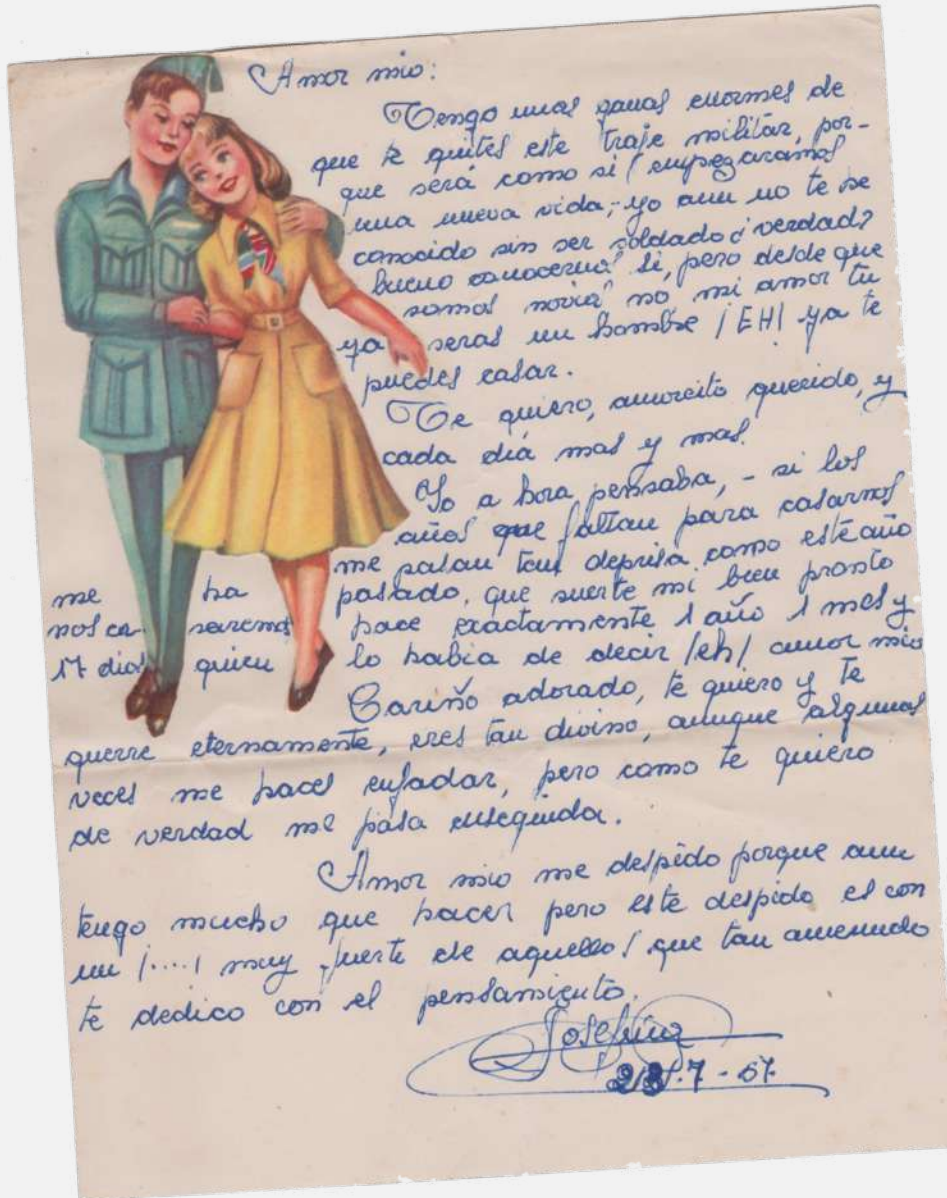 Amor mio:
Tengo unas ganas enormes de
que te quites este traje militar, por-
que será como si empezaramos
una nueva vida, yo aun no te he
conocido sin ser soldado ¿verdad?
bueno conocernos si, pero desde que
somos novios no mi amor tu
ya seras un hombre ¡EH! ya te
puedes casar.
Te quiero, amorcito querido, y
cada dia mas y mas.
Yo a hora pensaba, - si los
años que faltan para casarnos
me pasan tan deprisa como este año
me ha pasado, que suerte mi bien pronto
nos ca- saremos hace exactamente 1 año 1 mes y
17 dias quien lo habia de decir ¡eh! amor mio
Cariño adorado, te quiero y te
querre eternamente, eres tan divino, aunque algunas
veces me haces enfadar, pero como te quiero
de verdad me pasa enseguida.
Amor mio me despido porque aun
tengo mucho que hacer pero este despido es con
un ¡....! muy fuerte de aquellos que tan amenudo
te dedico con el pensamiento.
Josefina
7-57.